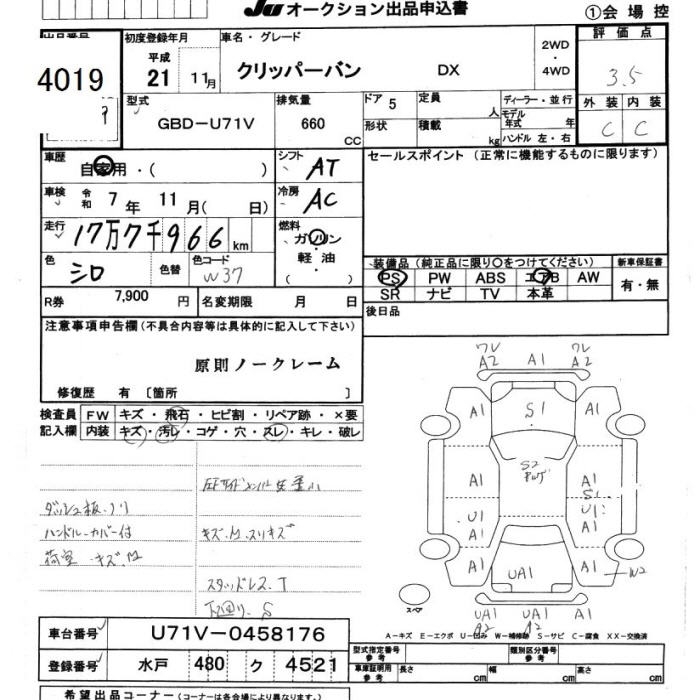 JU オークション出品申込書
①会場控
出品番号
4019
初度登録年月
平成
21 11月
車名・グレード
クリッパーバン DX
2WD
・
4WD
評価点
3.5
外装 内装
C C
型式
GBD-U71V
排気量
660
CC
ドア 5
形状
定員
人
積載
kg
ディーラー・並行
モデル年式 年
ハンドル 左・右
車歴
自家用・( )
シフト
AT
車検
令和 7年 11月( 日)
冷房
AC
走行
17万7千966 km
燃料
ガソリン
軽・油
( )
色
シロ
色替
色コード
W37
R券 7,900円
名変期限 月 日
セールスポイント(正常に機能するものに限ります)
装備品(純正品に限り○をつけてください)
新車保証書
PS PW ABS エアB AW
SR ナビ TV 本革
有・無
後日品
注意事項申告欄(不具合内容等は具体的に記入して下さい)
原則ノークレーム
修復歴 有〔箇所 〕
検査員
記入欄
FW キズ・飛石・ヒビ割・リペア跡・×要
内装 キズ・汚レ・コゲ・穴・スレ・キレ・破レ
ダッシュ板.ノリ
ハンドル-カバー付
荷室-キズ.M
キズ.M.スリキズ
スタッドレス.T
下回り.S
ワレ
A2 A1 ワレ
A2
A1 S1 A1
S2
A1 A1
S1
U1
A1 U1
A1
A1 UA1 A1
W2
UA1
A2 UA1
A2
スペア
A-キズ E-エクボ U-凹み W-補修跡 S-サビ C-腐食 XX-交換済
車台番号
U71V-0458176
登録番号
水戸 480 ク 4521
型式指定番号
参考
類別区分番号
参考
車庫証明用
参考
長さ cm 幅 cm 高さ cm
希望出品コーナー(コーナーは各会場により異なります。)